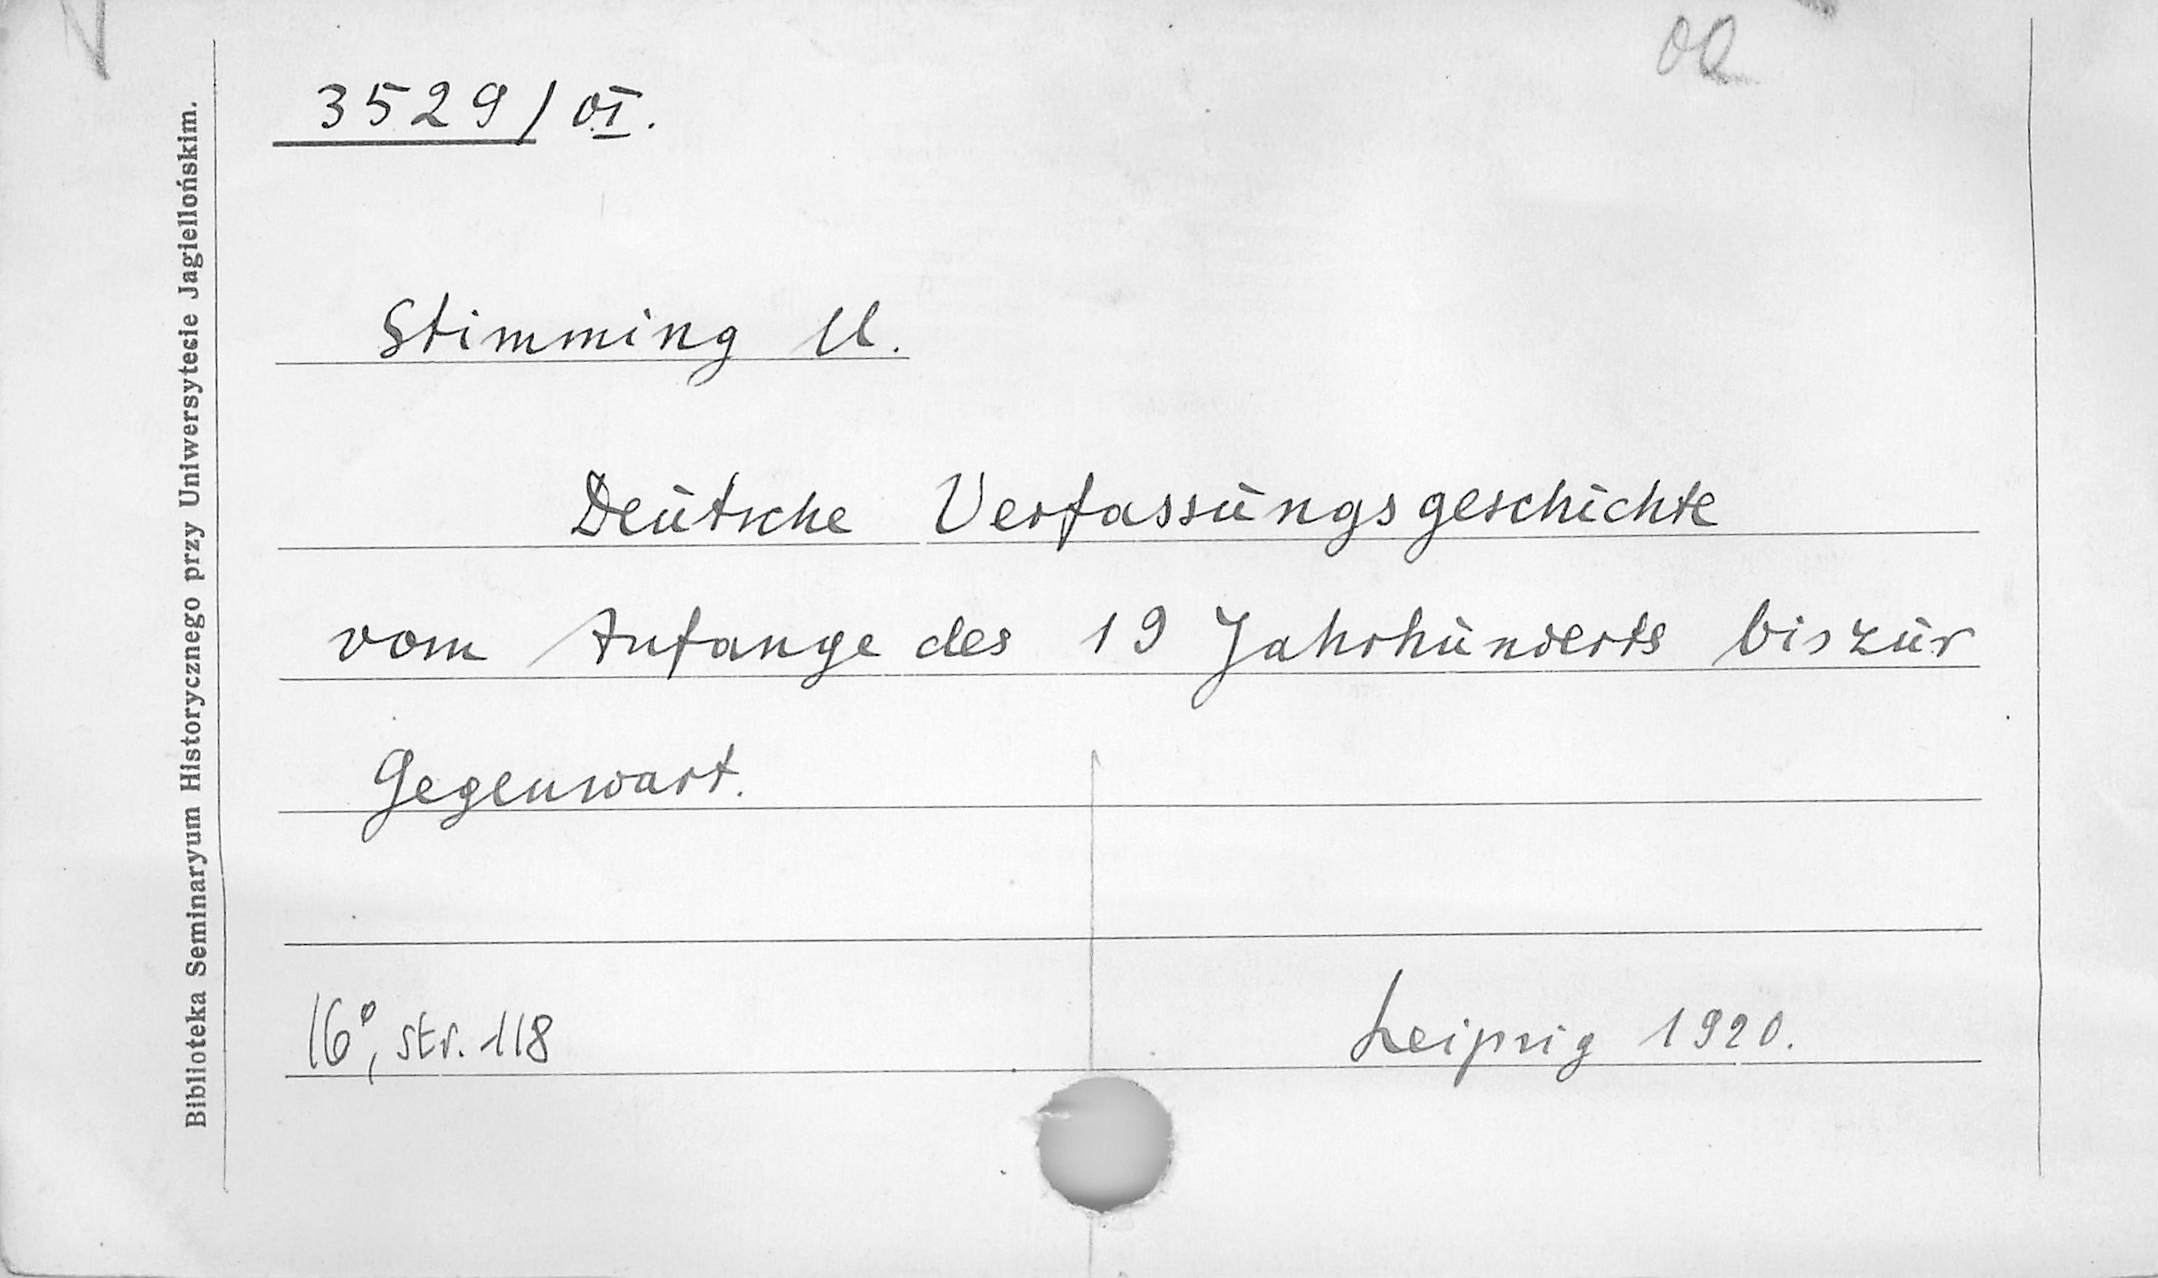 3529/OI.
Stimming M.
Deutsche Verfassungsgeschichte
vom Anfange des 19 Jahrhunderts bis zur
Gegenwart.
16°, str. 118
Leipzig 1920.
Biblioteka Seminaryum Historycznego przy Uniwersytecie Jagiellońskim.